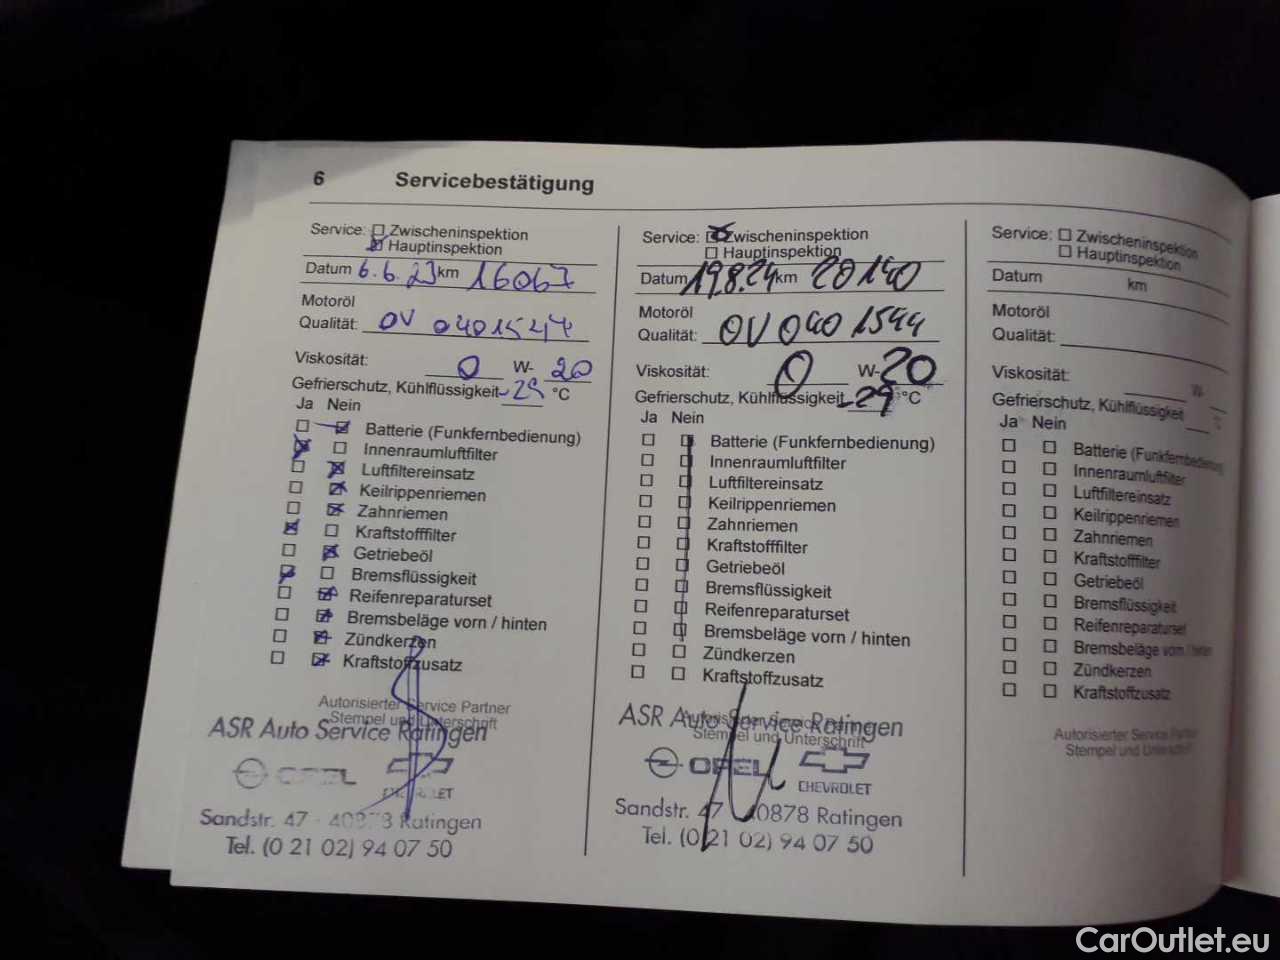 6 Servicebestätigung
Service: Zwischeninspektion
Hauptinspektion
Datum 6.6.23 km 16067
Motoröl
Qualität: OV 0401547
Viskosität: 0 W- 20
Gefrierschutz, Kühlflüssigkeit -29 °C
Ja Nein
Batterie (Funkfernbedienung)
Innenraumluftfilter
Luftfiltereinsatz
Keilrippenriemen
Zahnriemen
Kraftstofffilter
Getriebeöl
Bremsflüssigkeit
Reifenreparaturset
Bremsbeläge vorn / hinten
Zündkerzen
Kraftstoffzusatz
Autorisierter Service Partner
Stempel und Unterschrift
ASR Auto Service Ratingen
OPEL
CHEVROLET
Sandstr. 47 · 40878 Ratingen
Tel. (0 21 02) 94 07 50
Service: Zwischeninspektion
Hauptinspektion
Datum 19.8.24 km 20140
Motoröl
Qualität: OV 040 1544
Viskosität: 0 W- 20
Gefrierschutz, Kühlflüssigkeit -29 °C
Ja Nein
Batterie (Funkfernbedienung)
Innenraumluftfilter
Luftfiltereinsatz
Keilrippenriemen
Zahnriemen
Kraftstofffilter
Getriebeöl
Bremsflüssigkeit
Reifenreparaturset
Bremsbeläge vorn / hinten
Zündkerzen
Kraftstoffzusatz
Autorisierter Service Partner
Stempel und Unterschrift
ASR Auto Service Ratingen
OPEL
CHEVROLET
Sandstr. 47 · 40878 Ratingen
Tel. (0 21 02) 94 07 50
Service: Zwischeninspektion
Hauptinspektion
Datum km
Motoröl
Qualität:
Viskosität: W-
Gefrierschutz, Kühlflüssigkeit °C
Ja Nein
Batterie (Funkfernbedienung)
Innenraumluftfilter
Luftfiltereinsatz
Keilrippenriemen
Zahnriemen
Kraftstofffilter
Getriebeöl
Bremsflüssigkeit
Reifenreparaturset
Bremsbeläge vorn / hinten
Zündkerzen
Kraftstoffzusatz
Autorisierter Service Partner
Stempel und Unterschrift
CarOutlet.eu